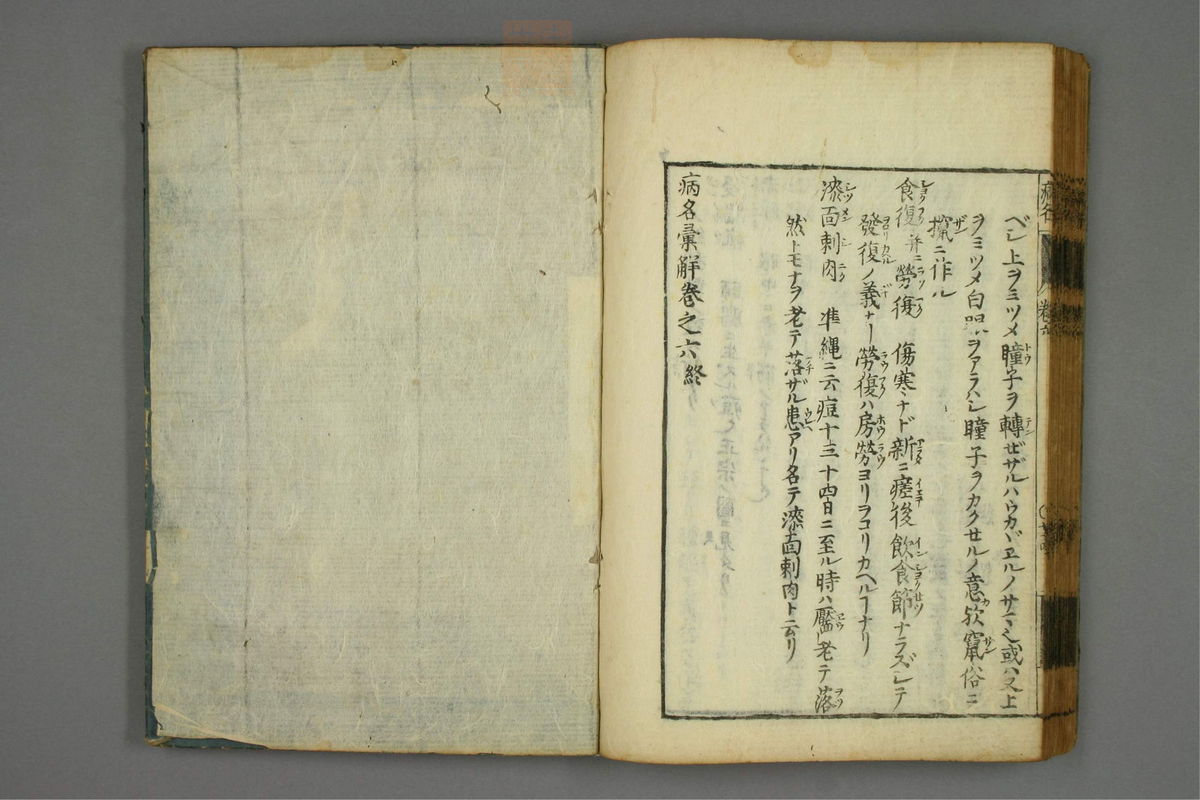 ベシ上ヲミツメ瞳子ヲ轉ゼザルハウカヾヱルノサマ也或ハ又上
ヲミツメ白眼ヲアラハシ瞳子ヲカクセルノ意歟竄俗ニ
攛ニ作ル
食復并ニ勞復 傷寒ナド新ニ瘥後飲食節ナラズシテ
發復ノ義ナリ勞復ハ房勞ヨリヲコリカヘルヿナリ
漆面刺肉 準縄ニ云痘十三十四日ニ至ル時ハ靨老テ落
然トモナヲ老テ落ザル患アリ名テ漆面刺肉ト云リ
病名彙解巻之六終